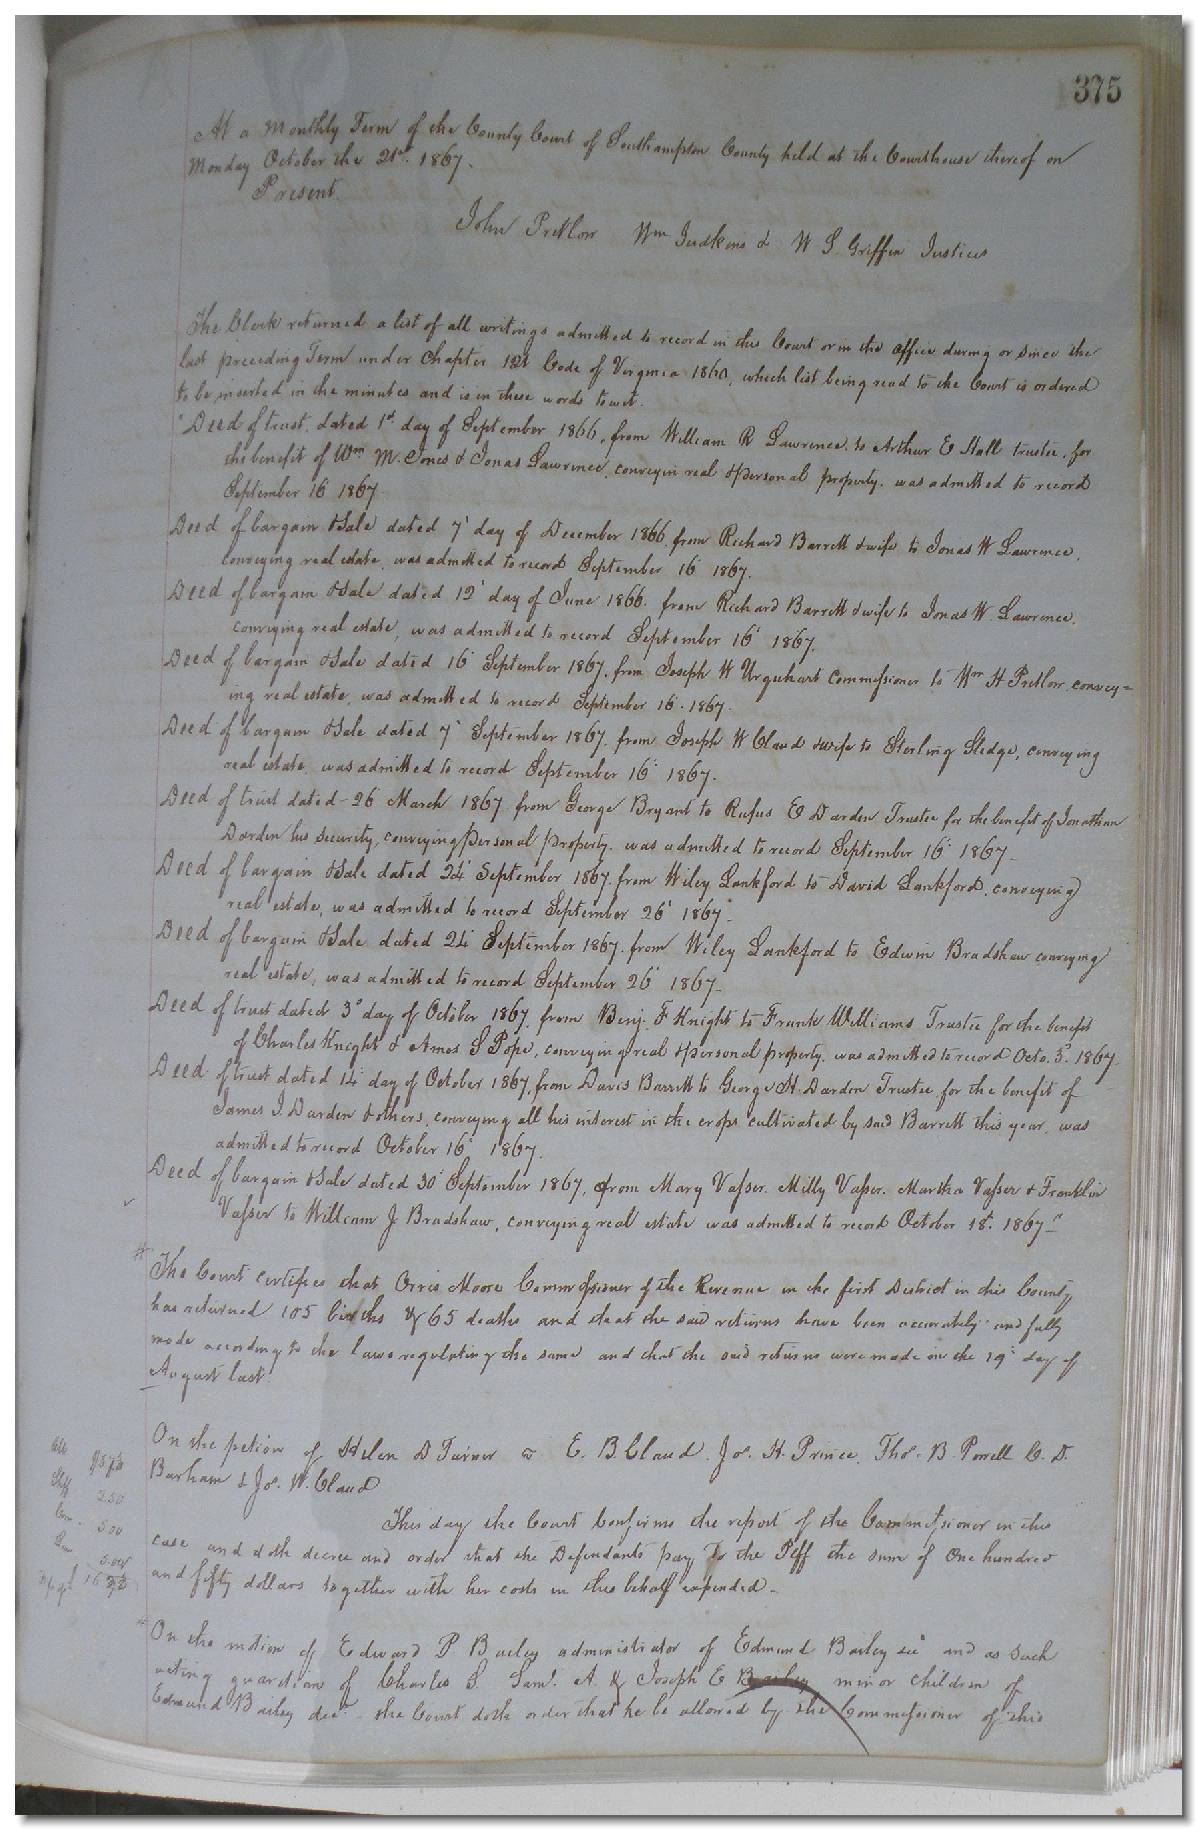 375
At a Monthly Term of the County Court of Southampton County held at the Courthouse thereof on
Monday October the 21st 1867.
Present.
John Pretlow Wm Judkins & W S. Griffin Justices
The Clerk returned a list of all writings admitted to record in this Court or in the office during or since the
last preceding Term under Chapter 121 Code of Virginia 1860, which list being read to the Court is ordered
to be inserted in the minutes and is in these words to wit.
"Deed of trust, dated 1st day of September 1866, from William R Lawrence, to Arthur E Hall trustee, for
the benefit of Wm M. Jones & Jonas Lawrence, conveyin real & personal property. was admitted to record
September 16 1867.
Deed of bargain & Sale dated 7' day of December 1866, from Richard Barrett & wife to Jonas W Lawrence,
conveying real estate, was admitted to record September 16 1867.
Deed of bargain & Sale dated 12' day of June 1866. from Richard Barrett & wife to Jonas W. Lawrence,
conveying real estate, was admitted to record September 16' 1867.
Deed of bargain & Sale dated 16' September 1867, from Joseph W Urquhart Commissioner to Wm H Pretlow, convey=
ing real estate, was admitted to record September 16. 1867.
Deed of bargain & Sale dated 7' September 1867. from Joseph W Claud & wife to Sterling Sledge, conveying
real estate, was admitted to record September 16' 1867.
Deed of trust dated 26 March 1867 from George Bryant to Rufus E Darden Trustee for the benefit of Jonathan
Darden his security, conveying personal property. was admitted to record September 16' 1867.
Deed of bargain & Sale dated 24' September 1867. from Wiley Lankford to David Lankford, conveying
real estate, was admitted to record September 26' 1867.
Deed of bargain & Sale dated 24' September 1867. from Wiley Lankford to Edwin Bradshaw conveying
real estate, was admitted to record September 26' 1867.
Deed of trust dated 3d day of October 1867, from Benj. F Knight to Frank Williams Trustee for the benefit
of Charles Knight & Amos S Pope, conveying real & personal property. was admitted to record Octo. 3d. 1867.
Deed of trust dated 14' day of October 1867, from Davis Barrett to George H. Darden Trustee for the benefit of
James J. Darden & others, conveying all his interest in the crops cultivated by said Barrett this year, was
admitted to record October 16' 1867.
Deed of bargain & Sale dated 30' September 1867, from Mary Vasser. Milly Vasser. Martha Vasser & Franklin
Vasser to William J Bradshaw, conveying real estate was admitted to record October 18th. 1867"
The Court certifies that Orris Moore Commissioner of the Revenue in the first District in this County
has returned 105 births & 65 deaths and that the said returns have been accurately and fully
made according to the laws regulating the same and that the said returns were made in the 19' day of
August last.
On the petion of Helen D Turner vs E. B Claud. Jos. H. Prince, Thos. B. Powell C. D.
Barham & Jos. W. Claud
This day the Court Confirms the report of the Commissioner in this
case and doth decree and order that the Defendants pay to the Plff the sum of One hundred
and fifty dollars together with her costs in this behalf expended.
2.50
5.00
On the motion of Edward P. Bailey administrator of Edmund Bailey decd and as such
acting guardian of Charles S. Saml. A. & Joseph E Bailey minor children of
Edmund Bailey decd. the Court doth order that he be allowed by the Commissioner of this